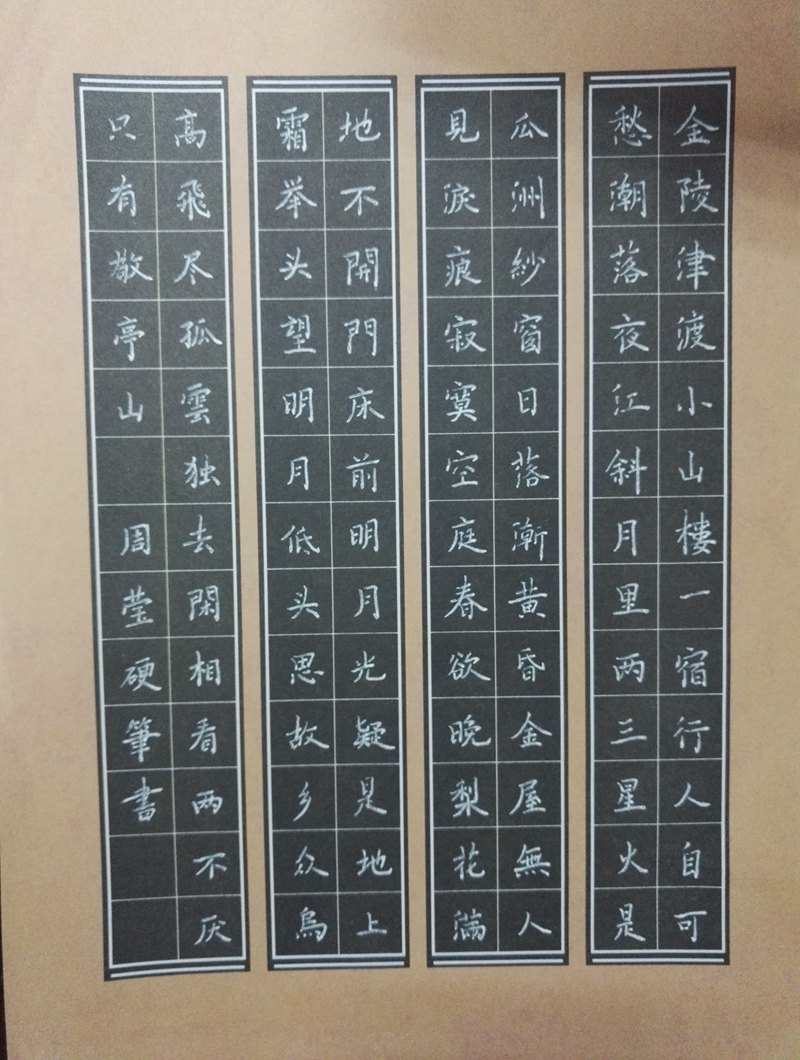 金陵津渡小山樓一宿行人自可
愁潮落夜江斜月里两三星火是
瓜洲紗窗日落漸黄昏金屋無人
見淚痕寂寞空庭春欲晚梨花满
地不開門床前明月光疑是地上
霜举头望明月低头思故乡众鳥
高飛尽孤雲独去閑相看两不厌
只有敬亭山 周莹硬筆書